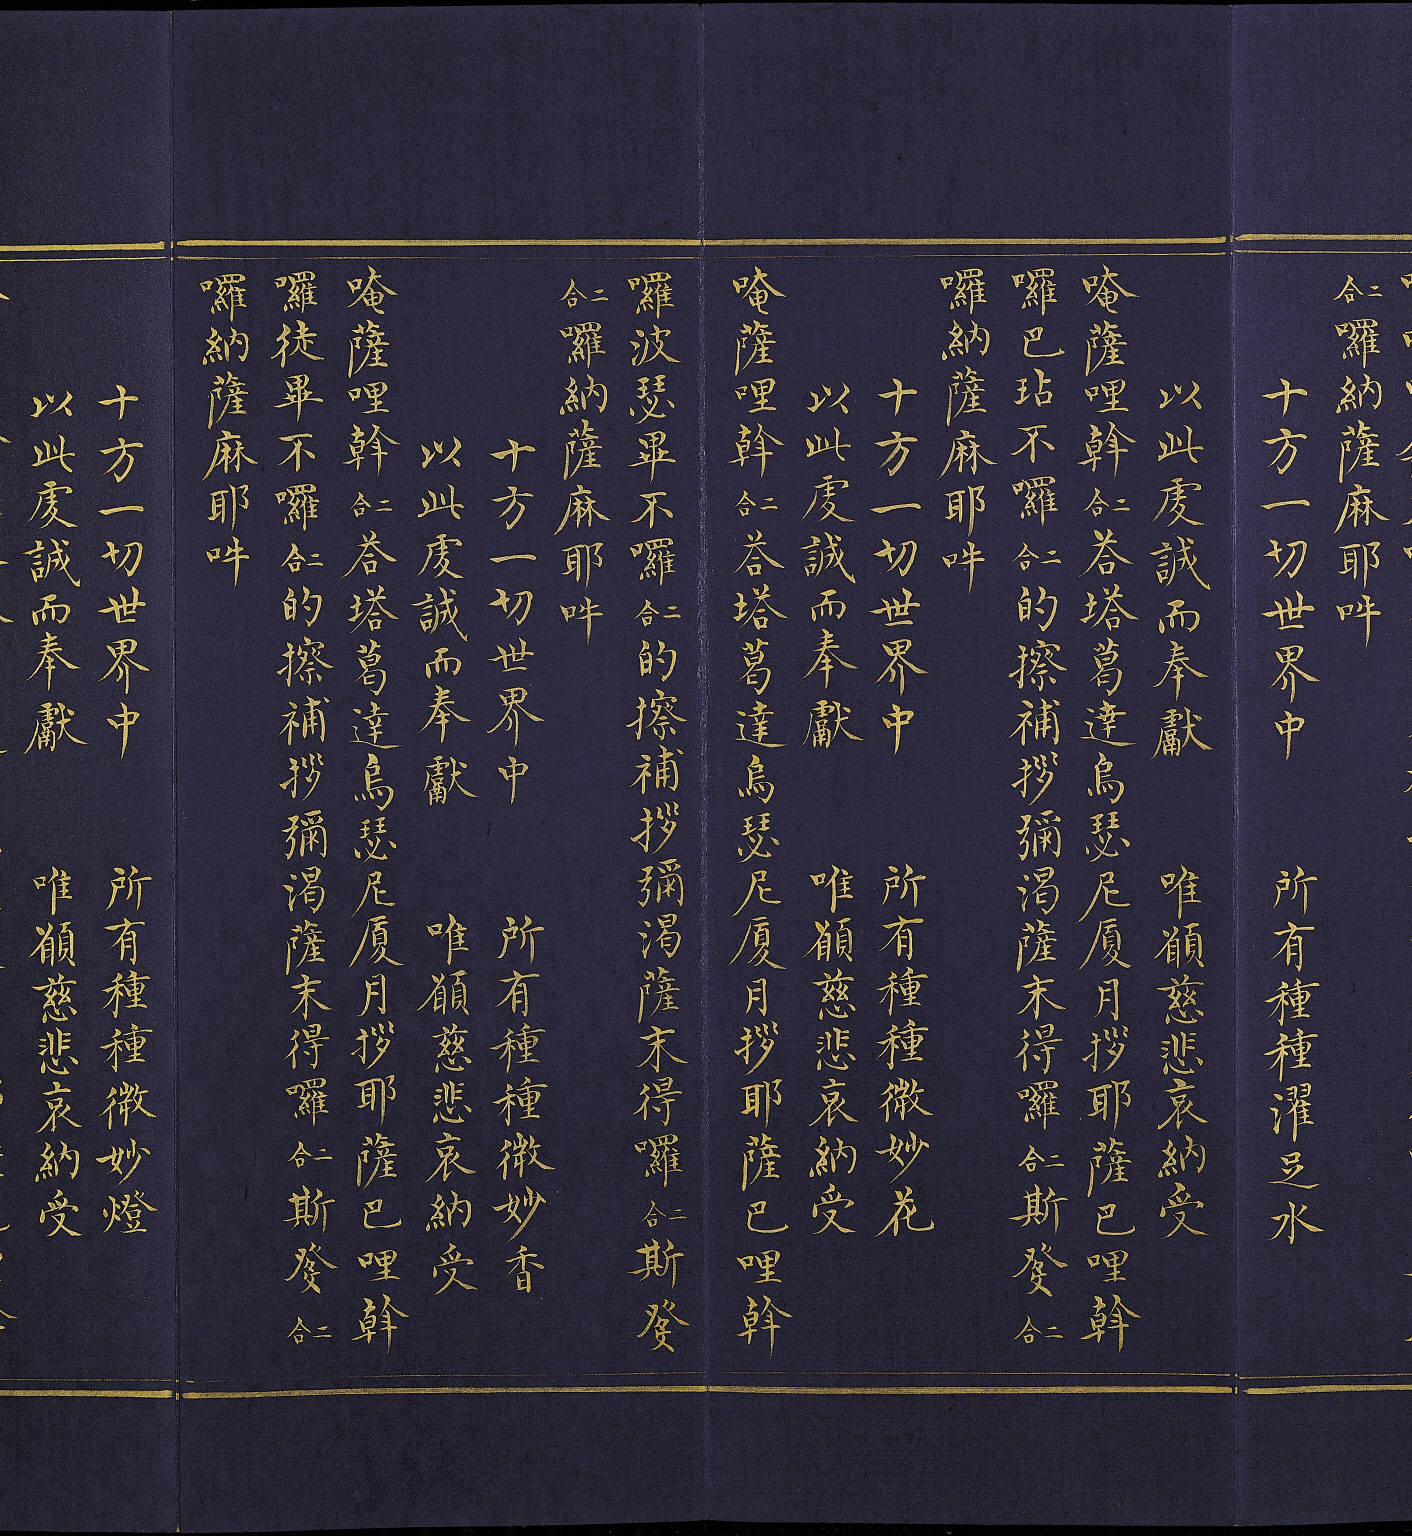 二合囉納薩麻耶吽
十方一切世界中　所有種種濯足水
以此虔誠而奉獻　唯願慈悲哀納受
唵薩哩斡二合荅塔葛達烏瑟尼厦月拶耶薩巴哩斡
囉巴玷不囉二合的擦補拶彌渴薩末得囉二合斯發二合
囉納薩麻耶吽
十方一切世界中　所有種種微妙花
以此虔誠而奉獻　唯願慈悲哀納受
唵薩哩斡二合荅塔葛達烏瑟尼厦月拶耶薩巴哩斡
囉波瑟畢不囉二合的擦補拶彌渴薩末得囉二合斯發
二合囉納薩麻耶吽
十方一切世界中　所有種種微妙香
以此虔誠而奉獻　唯願慈悲哀納受
唵薩哩斡二合荅塔葛達烏瑟尼厦月拶耶薩巴哩斡
囉徒畢不囉二合的擦補拶彌渴薩末得囉二合斯發二合
囉納薩麻耶吽
十方一切世界中　所有種種微妙燈
以此虔誠而奉獻　唯願慈悲哀納受